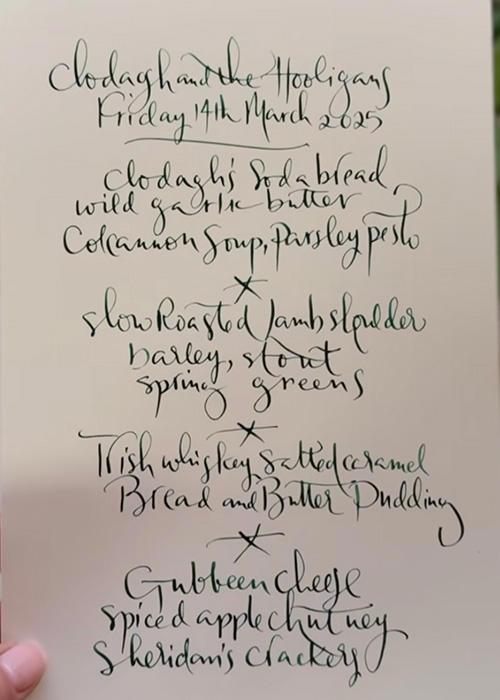 Clodagh and the Hooligans
Friday 14th March 2025
Clodagh's Soda bread,
wild garlic butter
Colcannon Soup, Parsley pesto
slow Roasted lamb shoulder
barley, stout
spring greens
Irish whiskey Salted caramel
Bread and Butter Pudding
Gubbeen cheese
spiced apple chutney
Sheridan's crackers